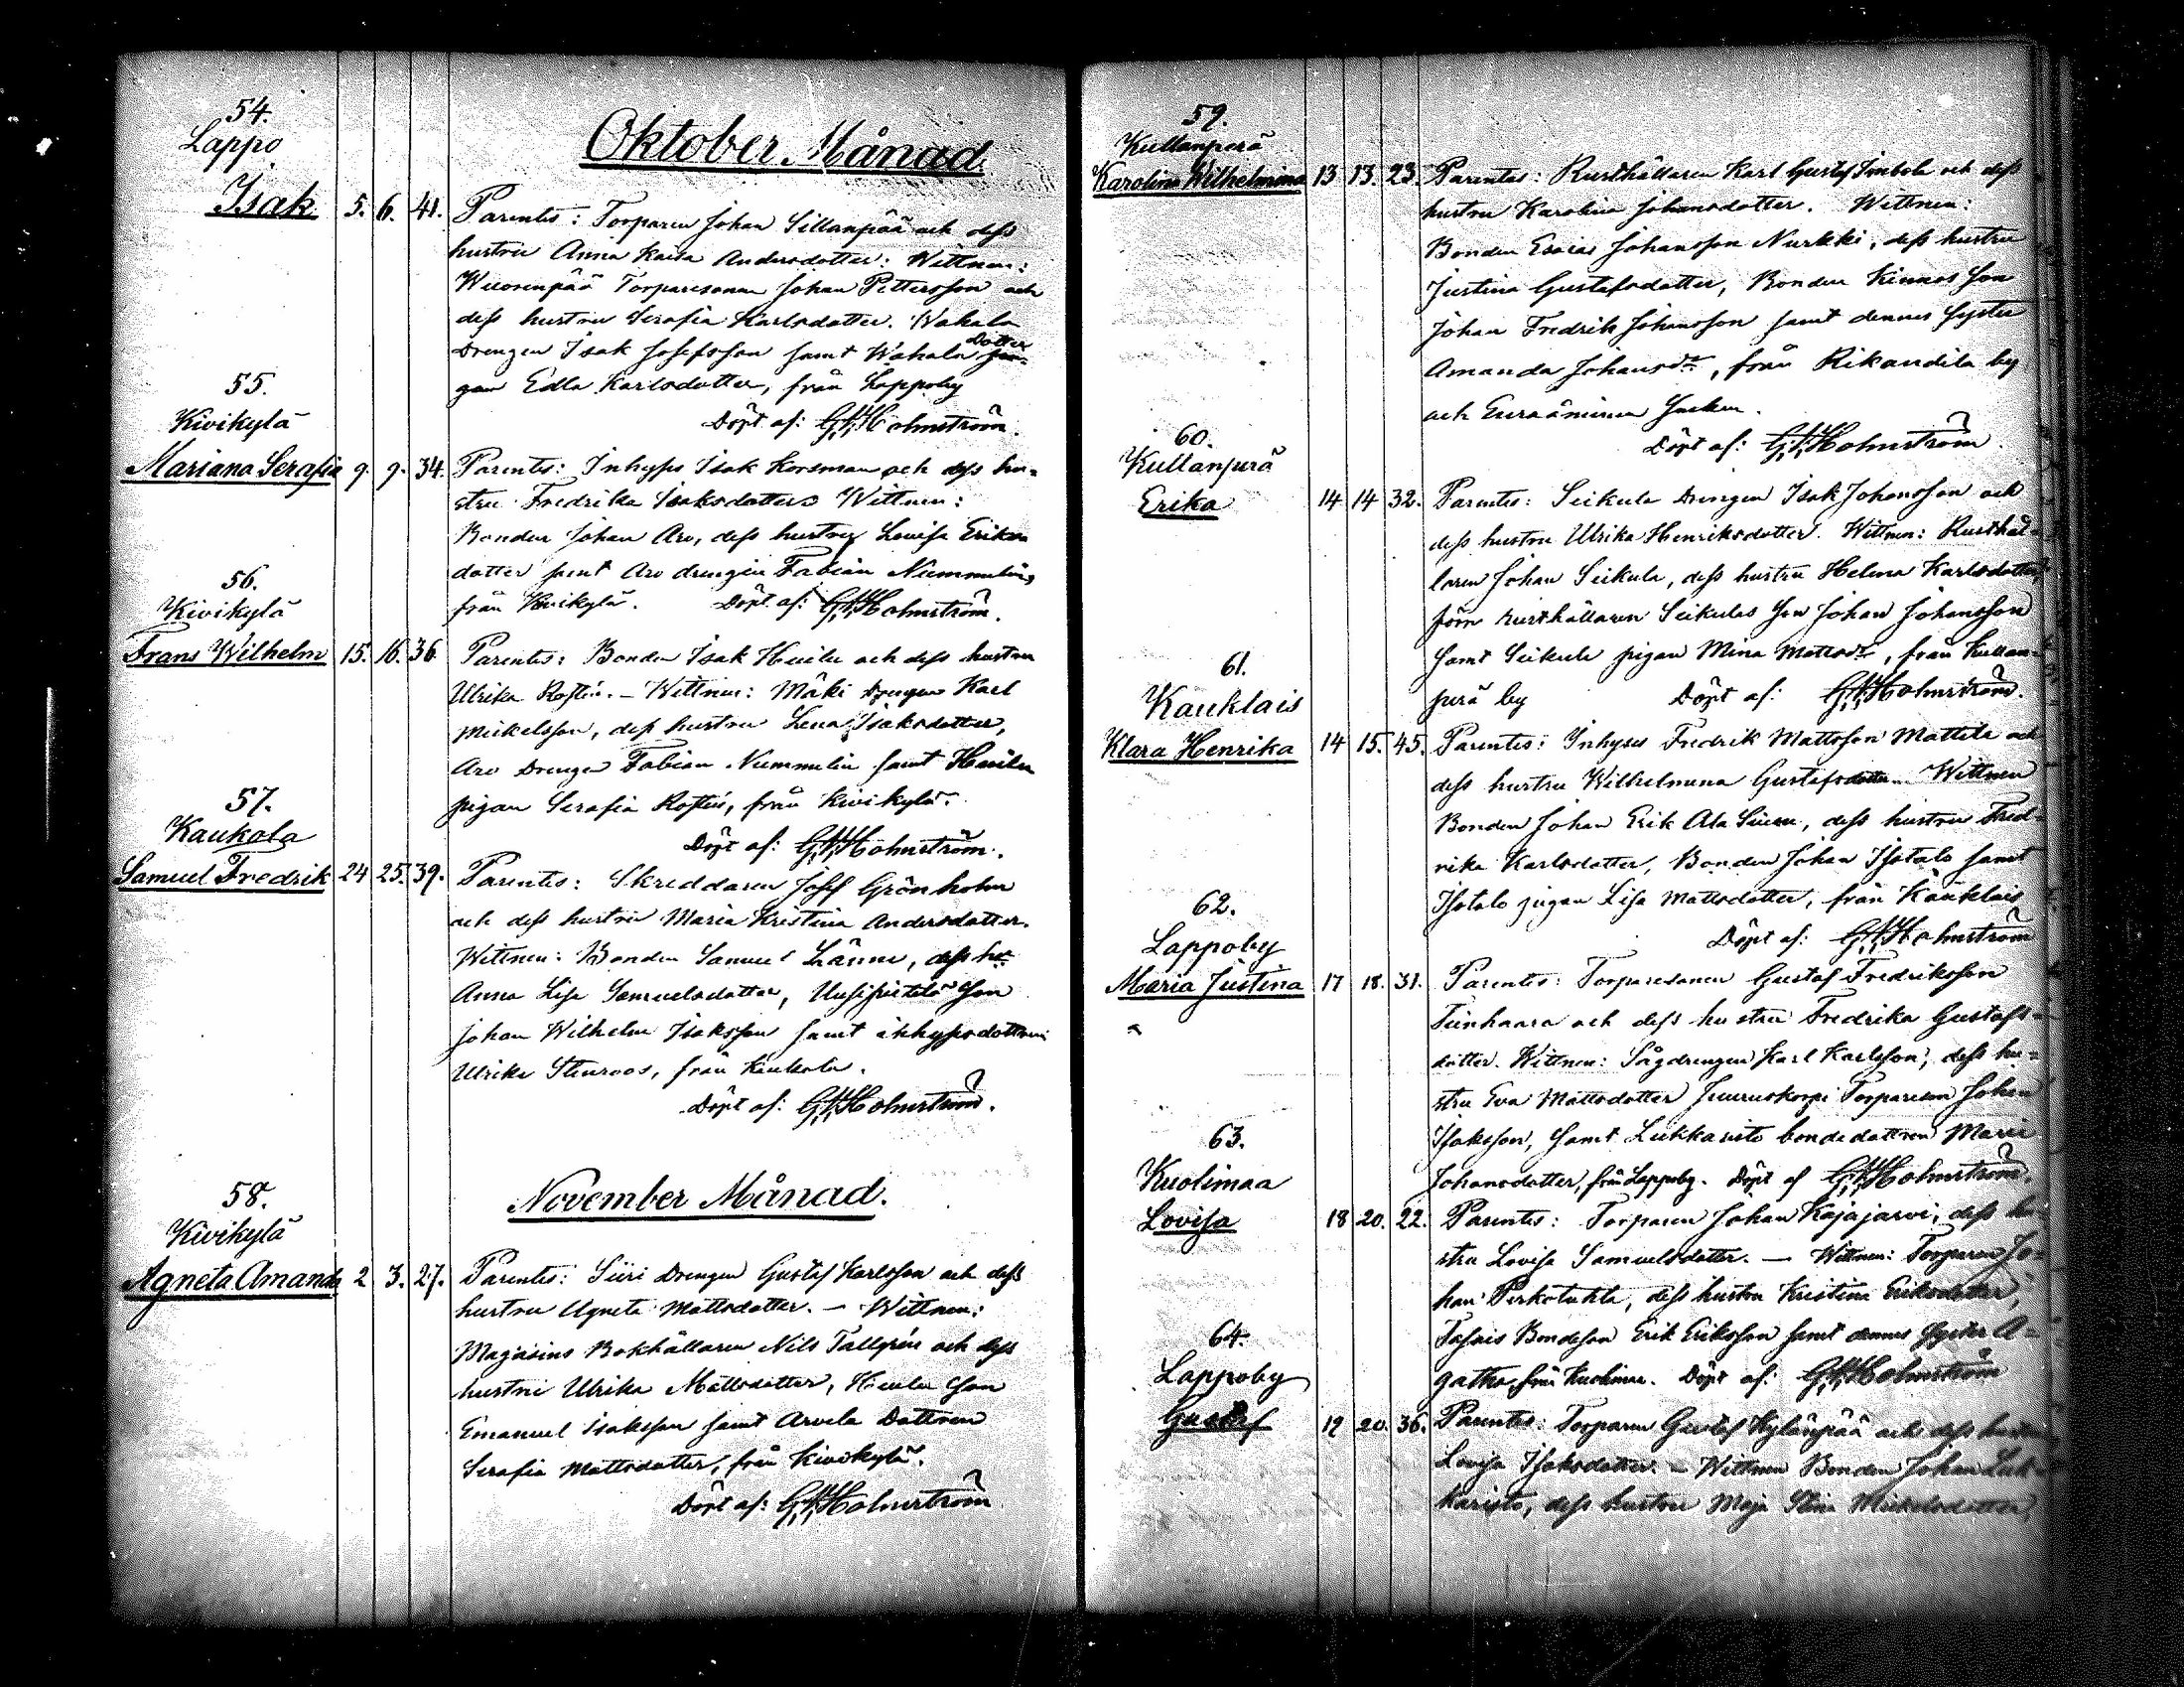 54.
Lappo
Oktober Månad.
Isak 5. 6. 41. Parentes: Torparen Johan Sillanpää och dess
hustru Anna Kaisa Andersdotter: Wittnen:
Wuorenpää Torparesonen Johan Pettersson och
dess hustru Serafia Karlsdotter. Wakala
Drengen Isak Josefsson samt Wakala Dotter
Edla Karlsdotter, från Lappoby
Döpt af: G. A. Holmström.
55.
Kivikylä
Mariana Serafia 9. 9. 34. Parentes: Inhyses Isak Korsman och dess hu=
stru Fredrika Isaksdotter Wittnen:
Bonden Johan Aro, dess hustru Lovisa Eriks
dotter samt Aro drengen Fabian Nummelin,
från Kivikylä. Döpt af: G. A. Holmström.
56.
Kivikylä
Frans Wilhelm 15. 16. 36. Parentes: Bonden Isak Heulu och dess hustru
Ulrika Rostén. – Wittnen: Mäki Drengen Karl
Mickelsson, dess hustru Lena Isaksdotter,
Aro Drengen Fabian Nummelin samt
pigan Serafia Rostén, från Kivikylä.
Döpt af: G. A. Holmström.
57.
Kaukola
Samuel Fredrik 24 25. 39. Parentes: Skreddaren Josef Grönholm
och dess hustru Maria Kristina Andersdotter.
Wittnen: Bonden Samuel Länni, dess hu
Anna Lisa Samuelsdotter, Uusipistilä Son
Johan Wilhelm Isaksson samt inhysesdottren
Ulrika Stenroos, från Kaukola.
Döpt af: G. A. Holmström.
November Månad.
58.
Kivikylä
Agneta Amanda 2 3. 27. Parentes: Siiri Drengen Gustaf Karlsson och dess
hustru Agneta Mattsdotter. – Wittnen:
Magasins Bokhållaren Nils Tallgrén och dess
hustru Ulrika Mattsdotter, Heulu Son
Emanuel Isaksson samt Arvela Dottren
Serafia Mattsdotter, från Kivikylä.
Döpt af: G. A. Holmström
59.
Kullanperä
Karolina Wilhelmina 13 13. 23. Parentes: Rusthållaren Karl Gustaf Simbola och dess
hustru Karolina Johansdotter. Wittnen:
Bonden Esaias Johansson Nurkki, dess hustru
Justina Gustafsdotter, Bonden Kinnos Son
Johan Fredrik Johansson samt dennes Syster
Amanda Johansdr, från Rikandila by
och Euraåminne Socken.
Döpt af: G. A. Holmström
60.
Kullanperä
Erika 14 14 32. Parentes: Seikula Drengen Isak Johansson och
dess hustru Ulrika Henriksdotter. Wittnen: Rusthål=
laren Johan Seikula, dess hustru Helena Karlsdotter,
förn rusthållaren Seikulas Son Johan Johansson
samt Seikula pigan Mina Mattsdr, från Kullan=
perä by Döpt af: G. A. Holmström.
61.
Kauklais
Klara Henrika 14 15. 45. Parentes: Inhyses Fredrik Mattsson Mattila och
dess hustru Wilhelmina Gustafsdotter. Wittnen
Bonden Johan Erik Ala , dess hustru Fred=
rika Karlsdotter, Bonden Johan Isotalo samt
Isotalo pigan Lisa Mattsdotter, från Kauklais
Döpt af: G. A. Holmström
62.
Lappoby
Maria Justina 17 18. 31. Parentes: Torparesonen Gustaf Fredriksson
Tiinhaara och dess hustru Fredrika Gustafs=
dotter. Wittnen: Sågdrengen Karl Karlsson, dess hu=
stru Eva Mattsdotter Torpareson Johan
Isaksson, Samt Lukkaristo bondedottren Maria
Johansdotter, från Lappoby. Döpt af G. A. Holmström.
63.
Kuolimaa
Lovisa 18 20. 22. Parentes: Torparen Johan Kajajarvi, dess hu
stru Lovisa Samuelsdotter. – Wittnen: Torparen Jo=
han , dess hustru Kristina Eriksdotter,
Bondeson Erik Eriksson samt dennes Syster A=
gatha, från Kuolimaa. Döpt af: G. A. Holmström
64.
Lappoby
Gustaf 19 20. 36. Parentes: Torparen Gustaf Kylänpää och dess hustru
Lovisa Isaksdotter. – Wittnen Bonden Johan Luk=
karisto, dess hustru Maja Stina Mickelsdotter,